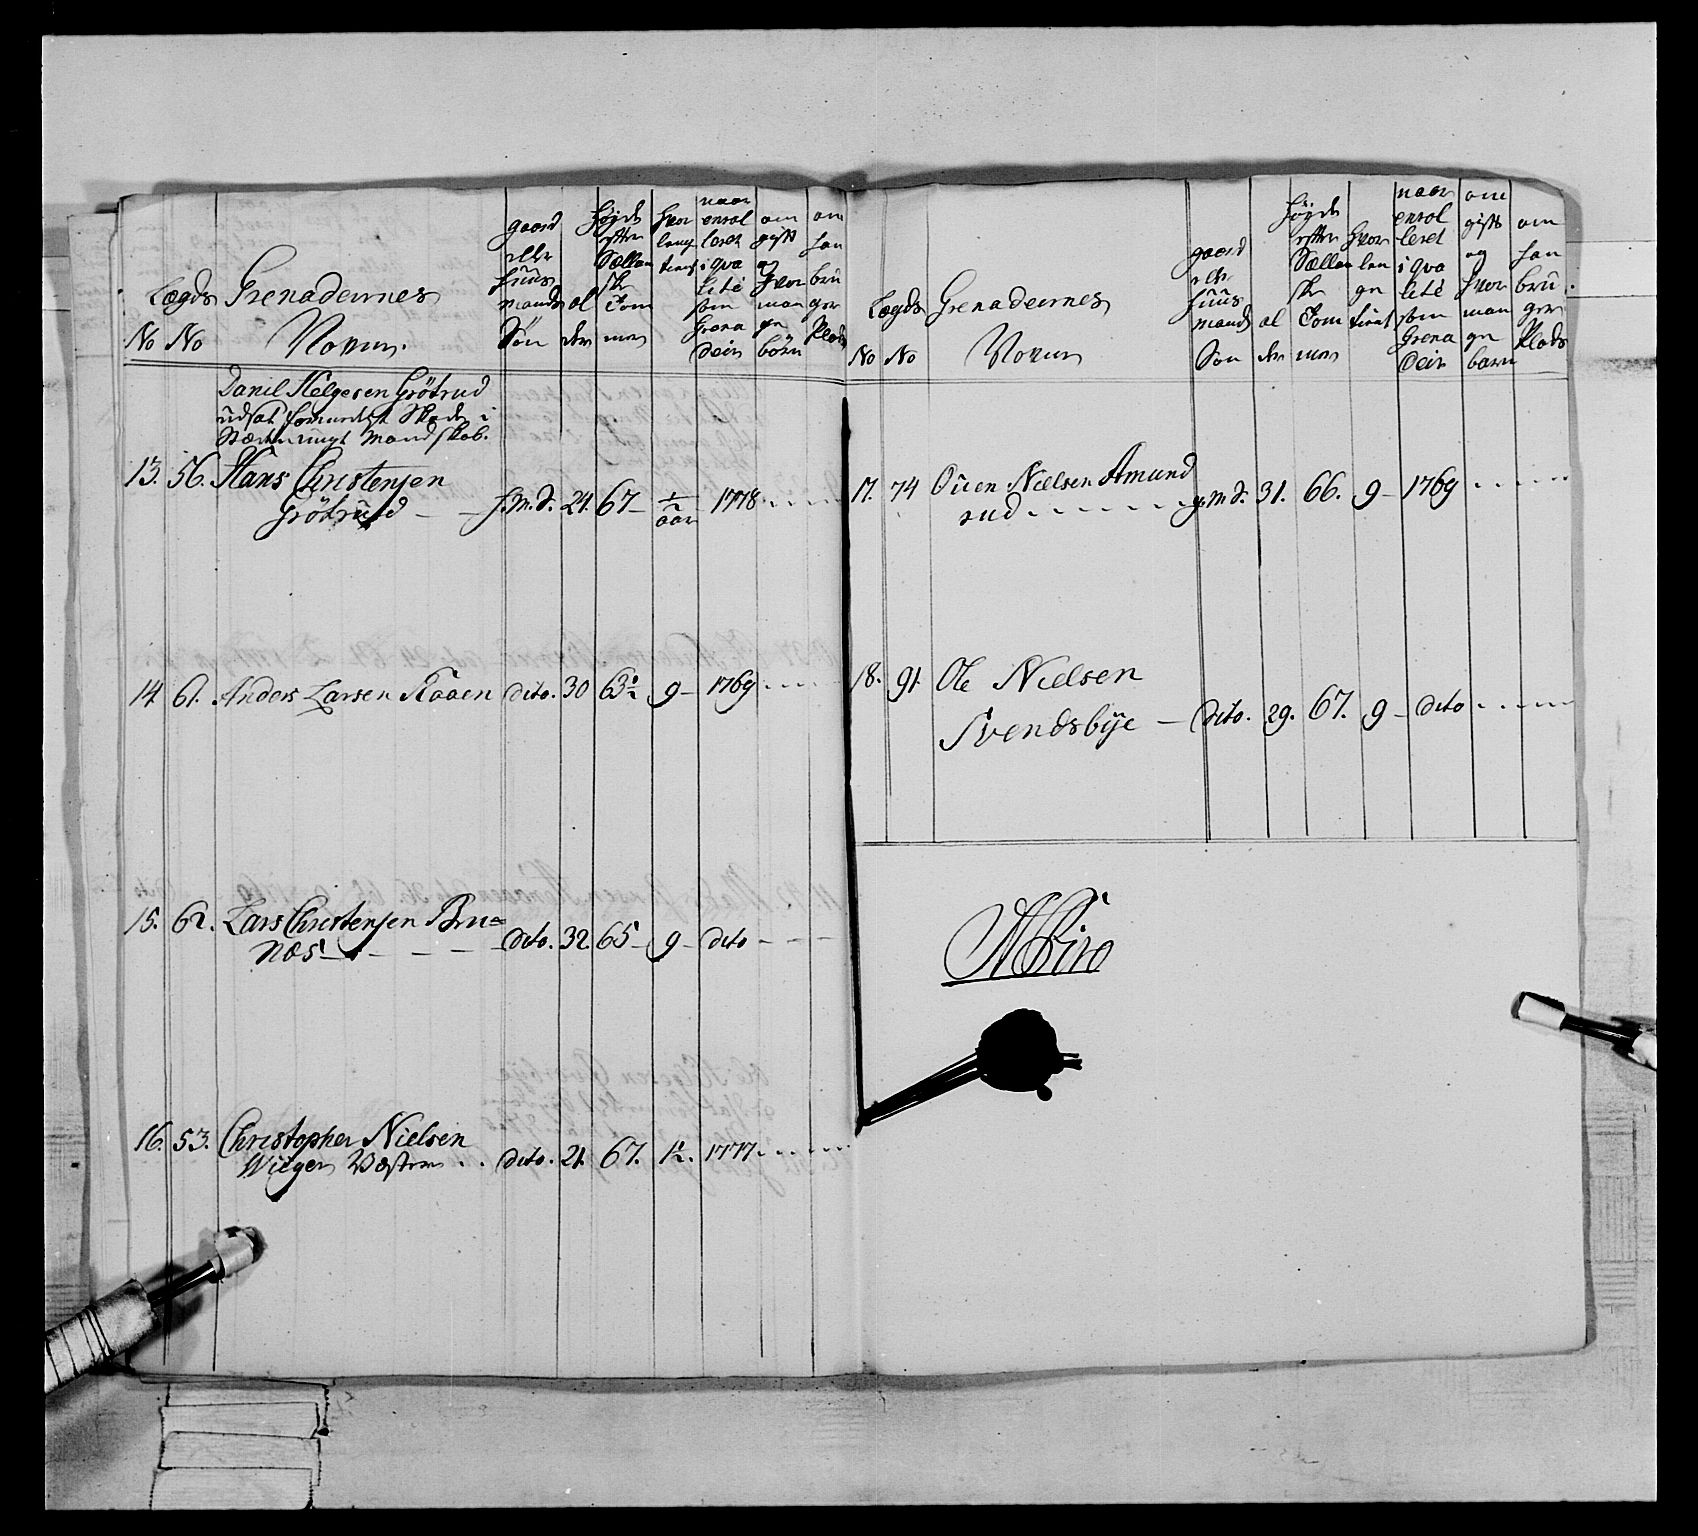 No
Lægds No
Grenadeernes Navne.
gaard eller huus mands Søn
al der
høyde efter Sællan sk Tom mer
hvor leng tient
naar enrol leret i qva lite som Grena deer
om gift og hvor man ge børn
om han bru ger Plads
Danil Helgesen Grötrud
udsat formedelst Skade i
13. 56. Hans Christensen
Grötrud - - h.m.S. 24. 67- ½ aar 1778. . . . .
14 61. Anders Larsen Raaen dito. 30 63½ 9- 1769 . . . . .
15. 62. Lars Christensen Bru=
næs - - - - dito. 32 65- 9- dito - - -
16. 53. Christopher Nielsen
Wiigen Væstre . . dito. 21. 67. 1½. 1777. . . . .
No
Lægds No
Grenadeernes Navne
gaard eller huus mands Søn
al der
høyde efter Sællan sk Tom mer
hvor len ge tient
naar enrol leret i qva lite som Grena deer
om gift og hvor man ge barn
om han bru ger Plads
17. 74 Ouen Nielsen Amund
rud . . . . . . g.m.S. 31. 66. 9- 1769 . . . . .
18. 91. Ole Nielsen
Svendsbÿe - dito. 29. 67. 9- dito . . . . .